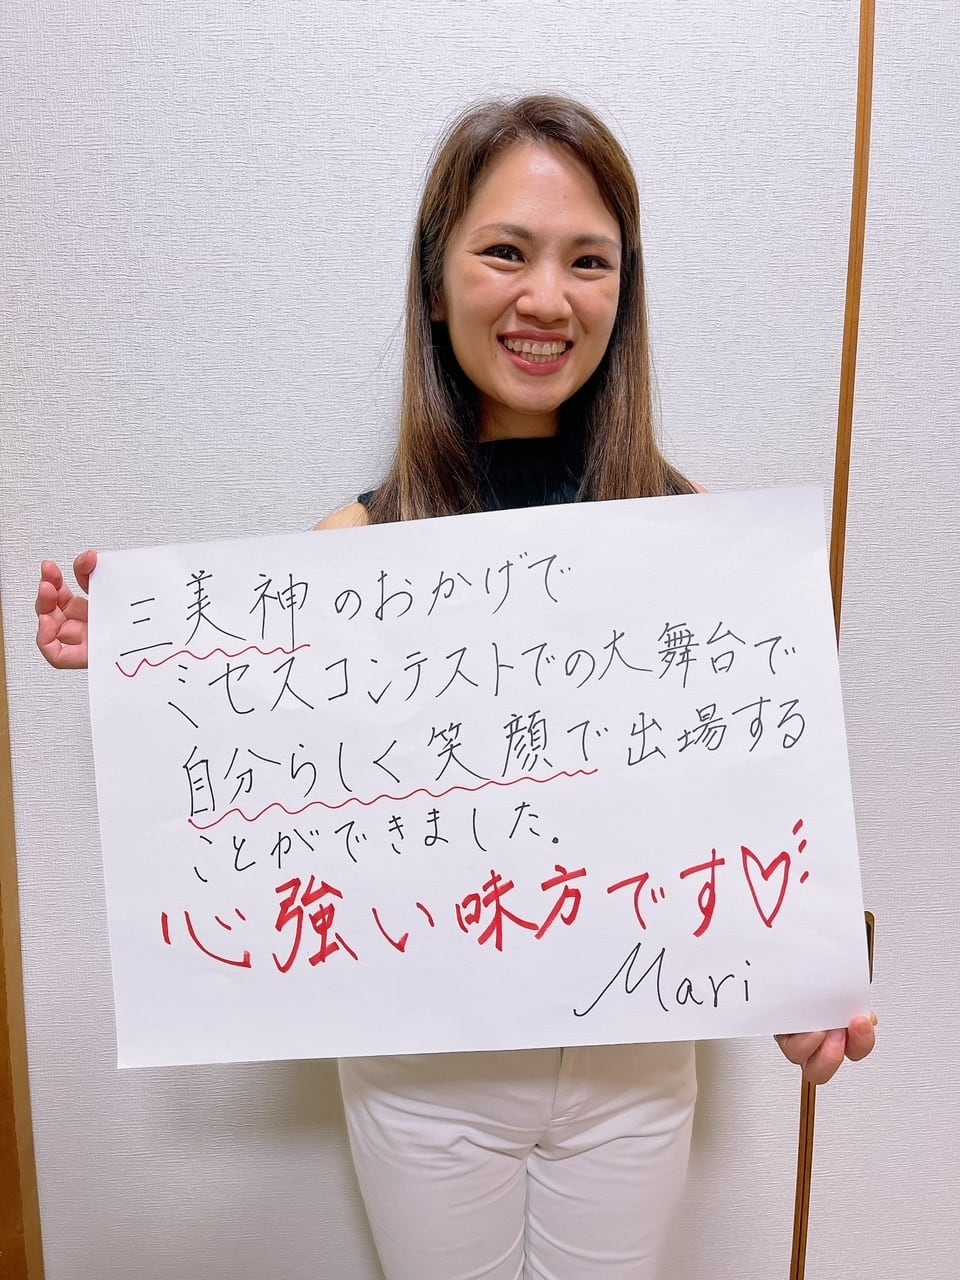 三美神のおかげで
ミセスコンテストでの大舞台で
自分らしく笑顔で出場する
ことができました。
心強い味方です♡
Mari